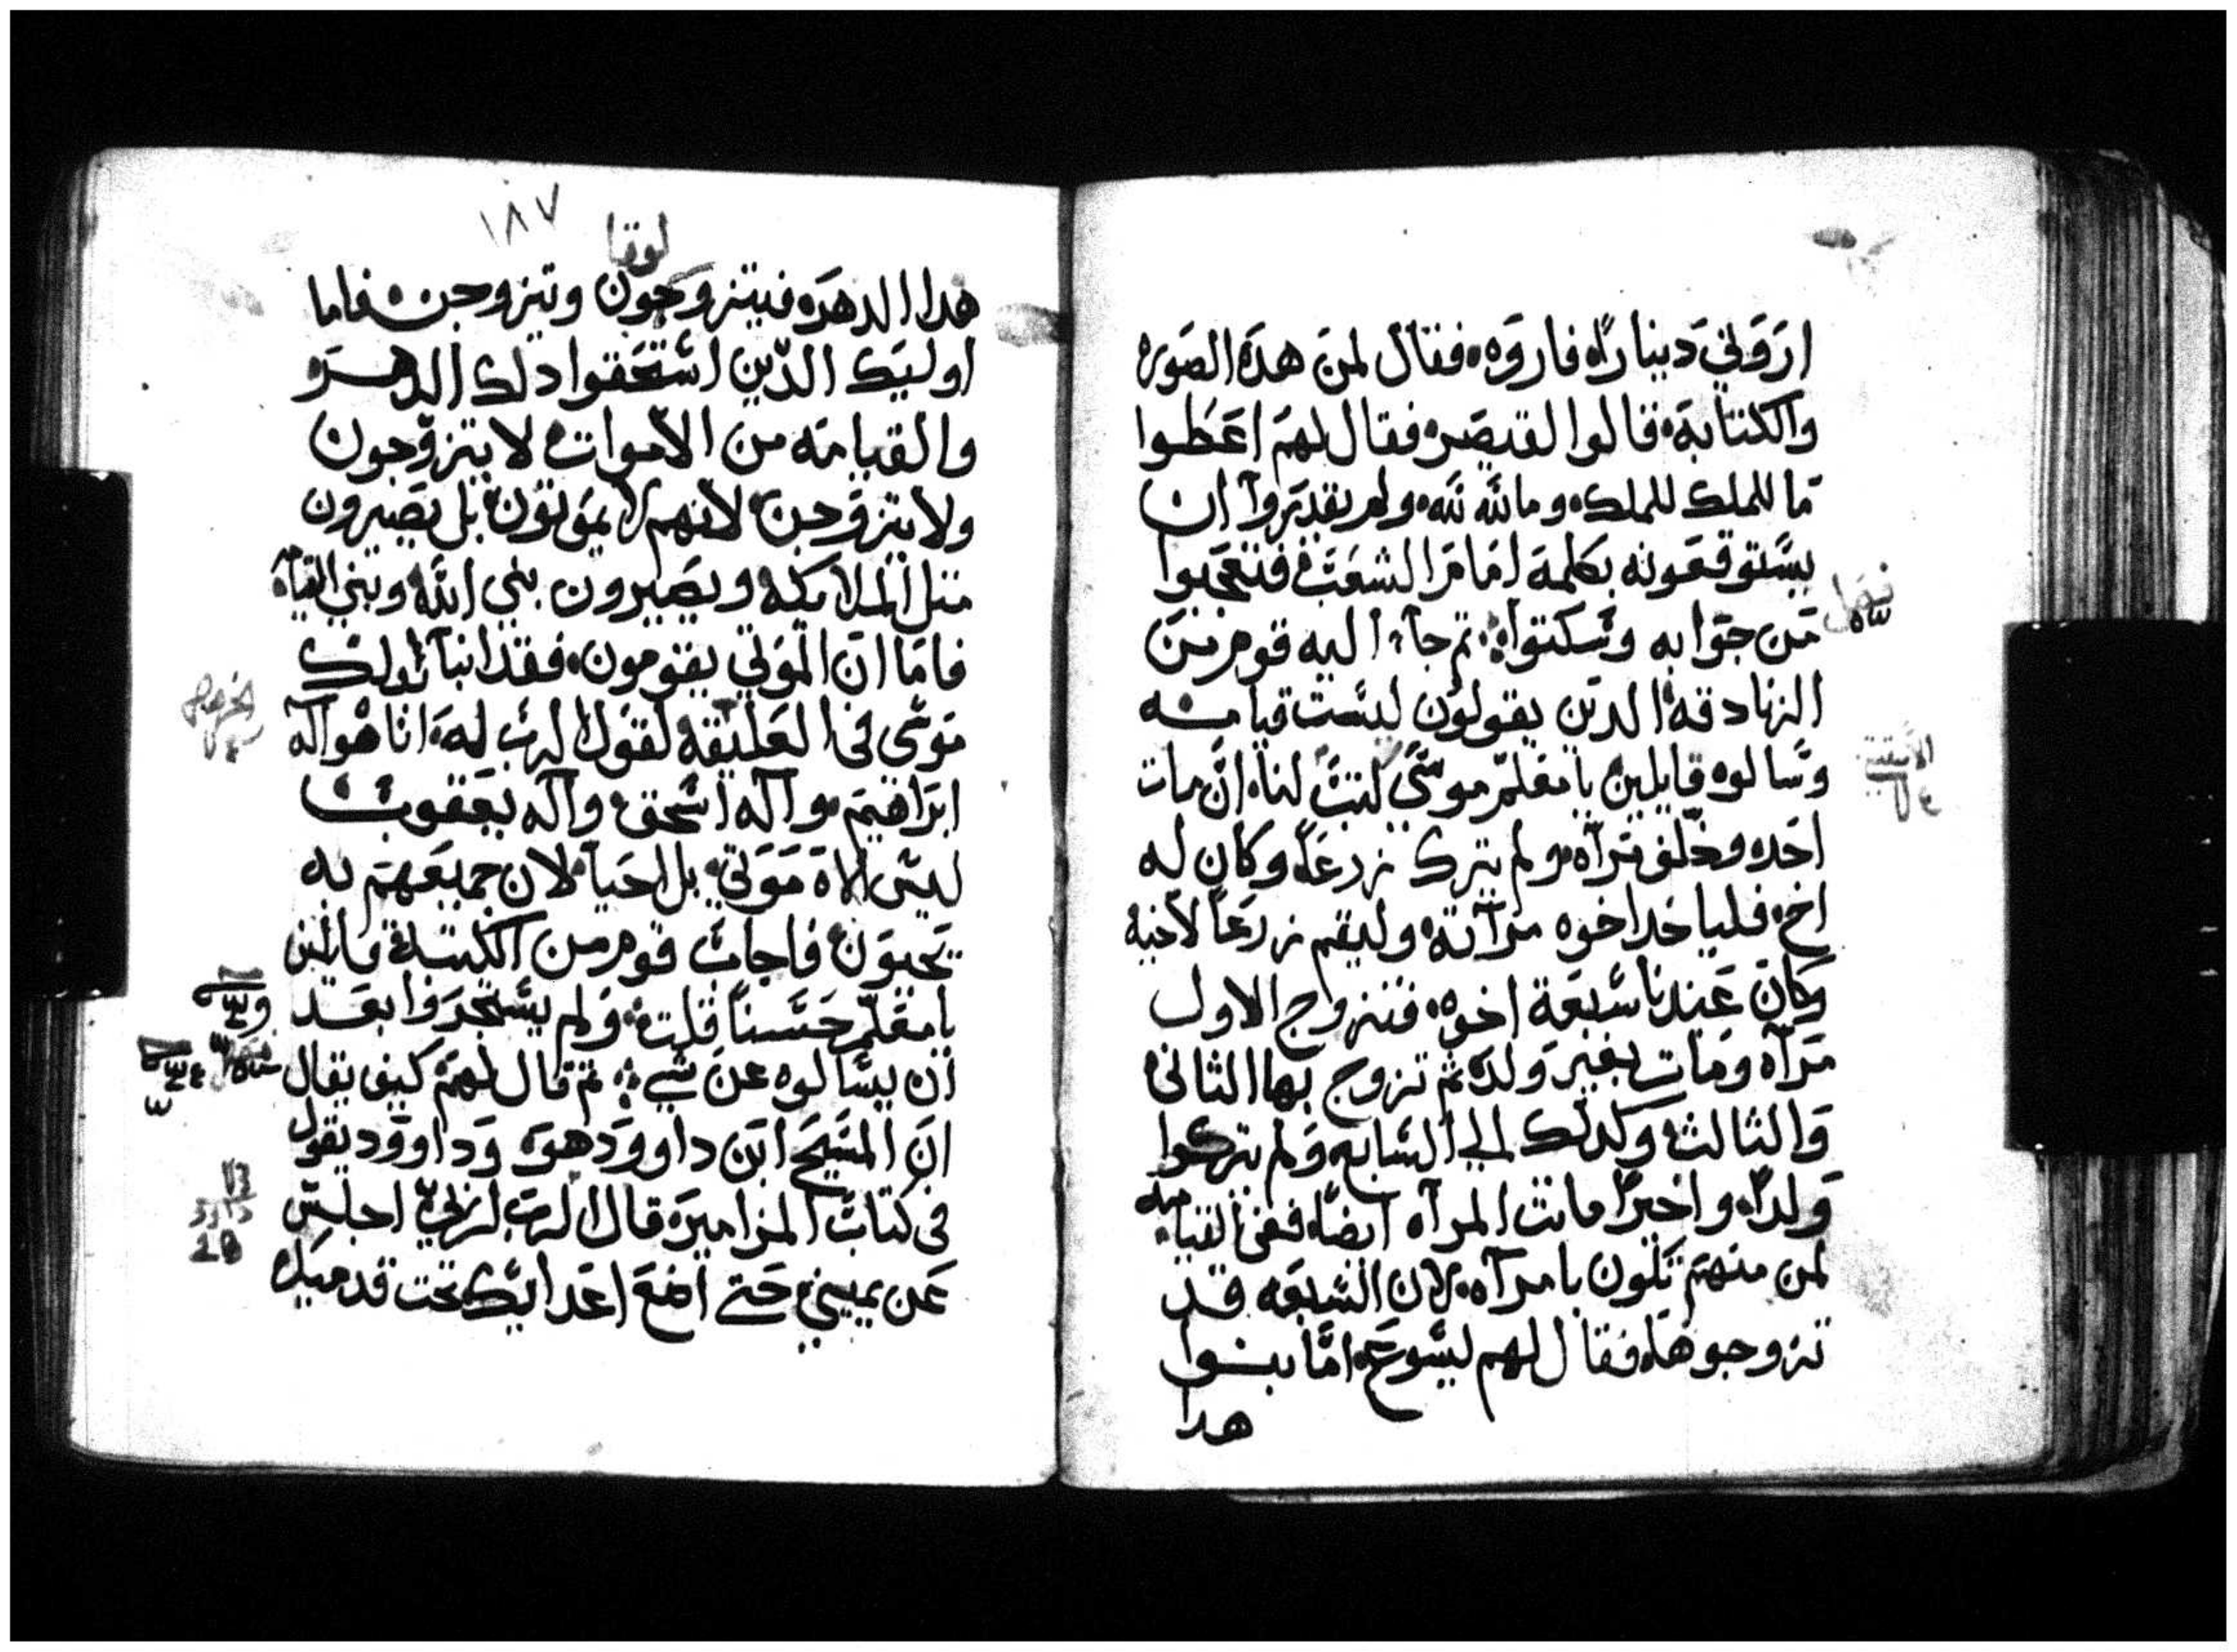 اروني دينارا فاروه فقال لمن هده الصوره
والكتابة قالوا القيصر فقال لهم اعطوا
ما للملك للملك وما لله لله ولم يقدروا ان
يستوقعونه بكلمة امام الشعب فتعجبوا
من جوابه وسكتوا ثم جآء اليه قوم من
الزنادقة الدين يقولون ليست قيامه
وسالوه قايلين يا معلم موسى كتب لنا ان مات
احد وخلف مرآه ولم يترك زرعا وكان له
اخ فلياخد اخوه مرآته وليقم زرعا لاخيه
وكان عندنا سبعة اخوه فتزوج الاول
مرآه ومات بغير ولد ثم تزوج بها الثاني
والثالث وكدلك الي السابع ولم يتركوا
ولدا واخيرا ماتت المرآه ايضا ففي القيامه
لمن منهم تكون يا مرآه لان السبعه قد
تزوجوها فقال لهم ليسوع اما بنوا
هدا
١٨٧
لوقا
هدا الدهر فيتزوجون وتيزوجن فاما
اوليك الدين استحقوا دلك الدهر و
والقيامه من الاموات لا يتزوجون
ولا يتزوجن لانهم لا يموتون بل يصيرون
متل الملايكه ويصيرون بني الله وبني القيامه
فاما ان الموتي يقومون فقد انبا بدلك
موسى في العليقة لقول الرب له انا هو آله
ابراهيم وآله اسحق وآله يعقوب
ليس الاه موتي بل احيآ لان جميعهم به
يحيون فاجاب قوم من الكتبة قايلين
يا معلم حسنا قلت ولم يستجروا بعد
ان يسالوه عن شي ثم قال لهم كيف يقال
ان المسيح ابن داوود هو وداوود يقول
في كتاب المزامير قال الرب لربي اجلس
عن يميني حتي اضع اعدايك تحت قدميك